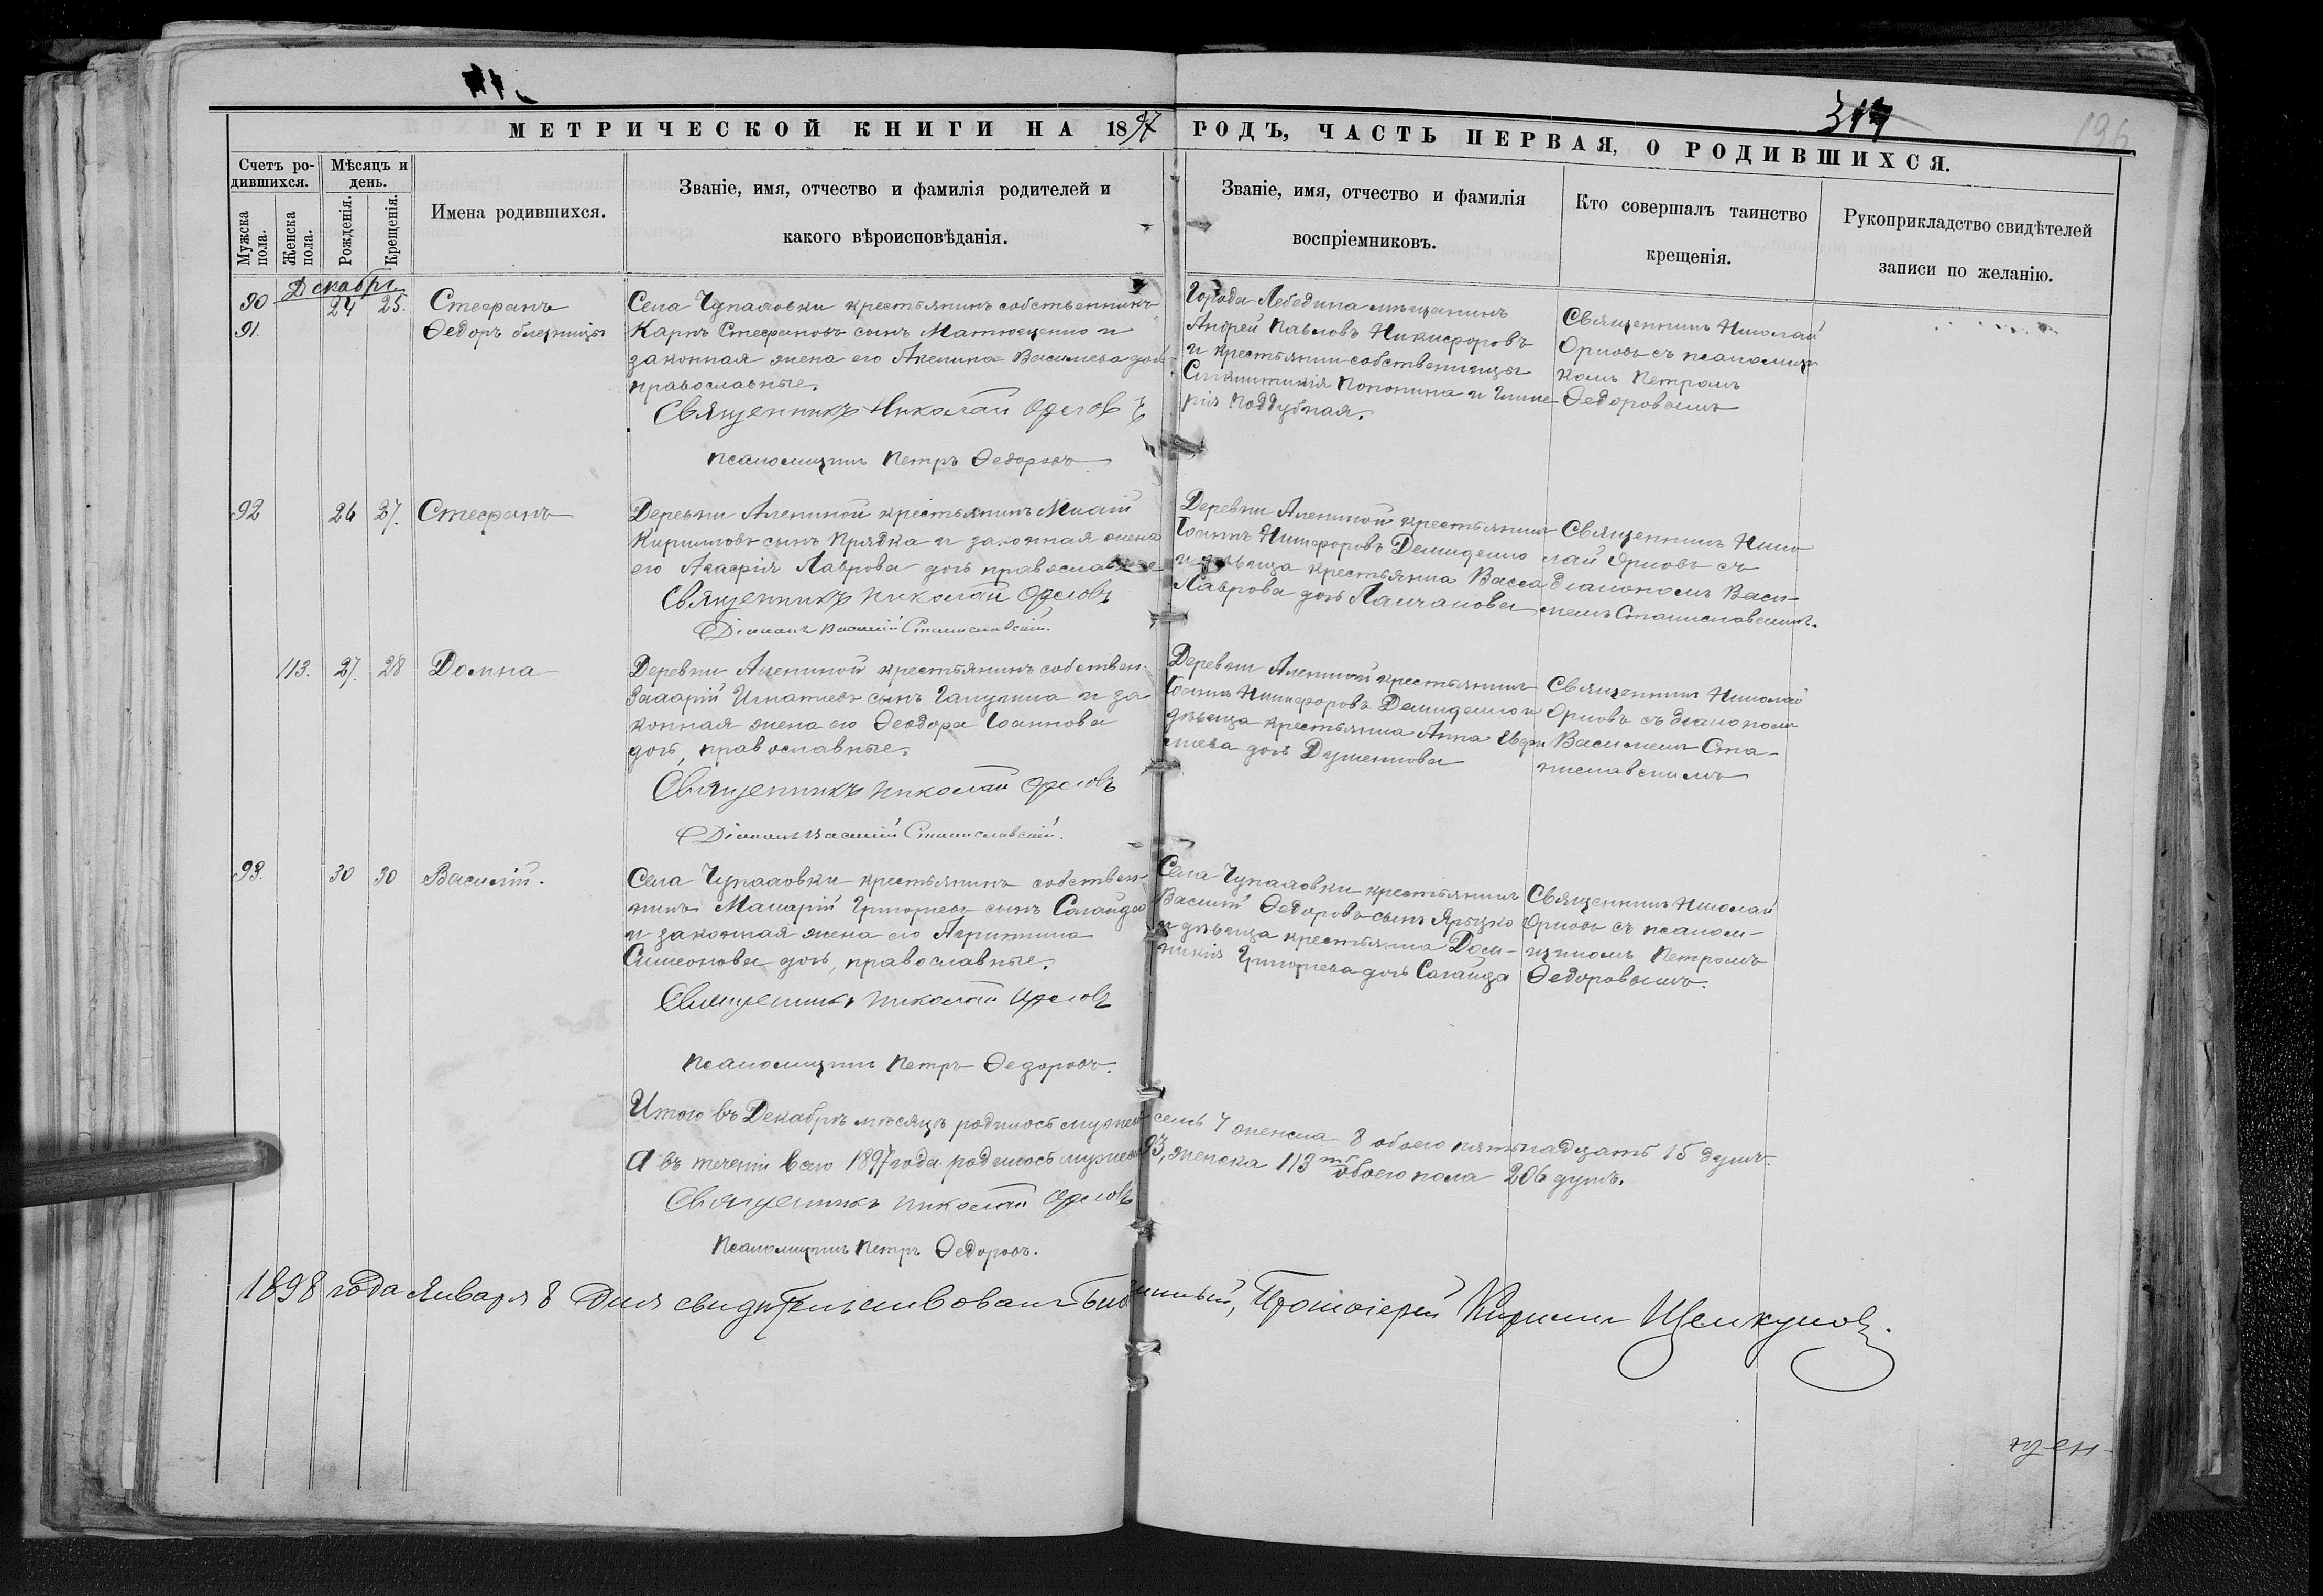 314
196
МЕТРИЧЕСКОЙ КНИГИ НА 1897 ГОДЪ, ЧАСТЬ ПЕРВАЯ, О РОДИВШИХСЯ.
Счетъ родившихся.
Мужска пола.
Женска пола.
Мѣсяцъ и день.
Рожденія.
Крещенія.
Имена родившихся.
Званіе, имя, отчество и фамилія родителей и
какого вѣроисповѣданія.
Званіе, имя, отчество и фамилія
воспріемниковъ.
Кто совершалъ таинство
крещенія.
Рукоприкладство свидѣтелей
записи по желанію.
Декабрь
90 24 25. Стефанъ
91. Ѳедоръ близнецы
Села Чупаховки крестьянинъ собственникъ
Карпъ Стефановъ сынъ Матюшенко и
законная жена его Акилина Васильева дочь
православные.
Священникъ Николай Орловъ
Псаломщикъ Петръ Ѳедоровъ
Города Лебедина мѣщанинъ
Андрей Павловъ Никифоровъ
и крестьянки собственницы
Синклитикія Попонина и Глике
рія Поддубная.
Священникъ Николай
Орловъ съ псаломщи
комъ Петромъ
Ѳедоровымъ
92 26 27. Стефанъ
Деревни Алениной крестьянинъ
Кирилловъ сынъ Прядка и законная жена
его Агафія Лаврова дочь православные
Священникъ Николай Орловъ
Діаконъ Василій Станиславскій.
Деревни Алениной крестьянинъ
Іоаннъ Никифоровъ Демиденко
и дѣвица крестьянка Васса
Лаврова дочь
Священникъ Нико
лай Орловъ съ
діакономъ Васи-
ліемъ Станиславскимъ.
113. 27. 28 Домна
Деревни Алениной крестьянинъ собствен.
Захарій Игнатіевъ сынъ Галушка и за
конная жена его Ѳеодора Іоаннова
дочь, православные.
Священникъ Николай Орловъ
Діаконъ Василій Станиславскій.
Деревни Алениной крестьянинъ
Іоаннъ Никифоровъ Демиденко и
дѣвица крестьянка Анна Евдок
имева дочь Душенкова
Священникъ Николай
Орловъ съ діакономъ
Василіемъ Ста-
ниславскимъ
93. 30 30 Василій.
Села Чупаховки крестьянинъ собствен-
никъ Макарій Григорьевъ сынъ Сагайдакъ
и законная жена его Агриппина
Симеонова дочь, православные.
Священникъ Николай Орловъ
Псаломщикъ Петръ Ѳедоровъ.
Села Чупаховки крестьянинъ
Василій Ѳедоровъ сынъ Ярецко
и дѣвица крестьянка Дом-
никія Григорьева дочь
Священникъ Николай
Орловъ съ псалом-
щикомъ Петромъ
Ѳедоровымъ.
Итого въ Декабрѣ мѣсяцѣ родилось мужеска семь 7 женска 8 обоего пятьнадцать 15 душъ.
А въ теченіи всего 1897 года родилось мужеска 93, женска 113 обоего пола 206 душъ.
Священникъ Николай Орловъ
Псаломщикъ Петръ Ѳедоровъ.
1898 года Января 8 дня свидѣтельствовалъ Благочинный, Протоіерей Кириллъ Щелкуновъ.